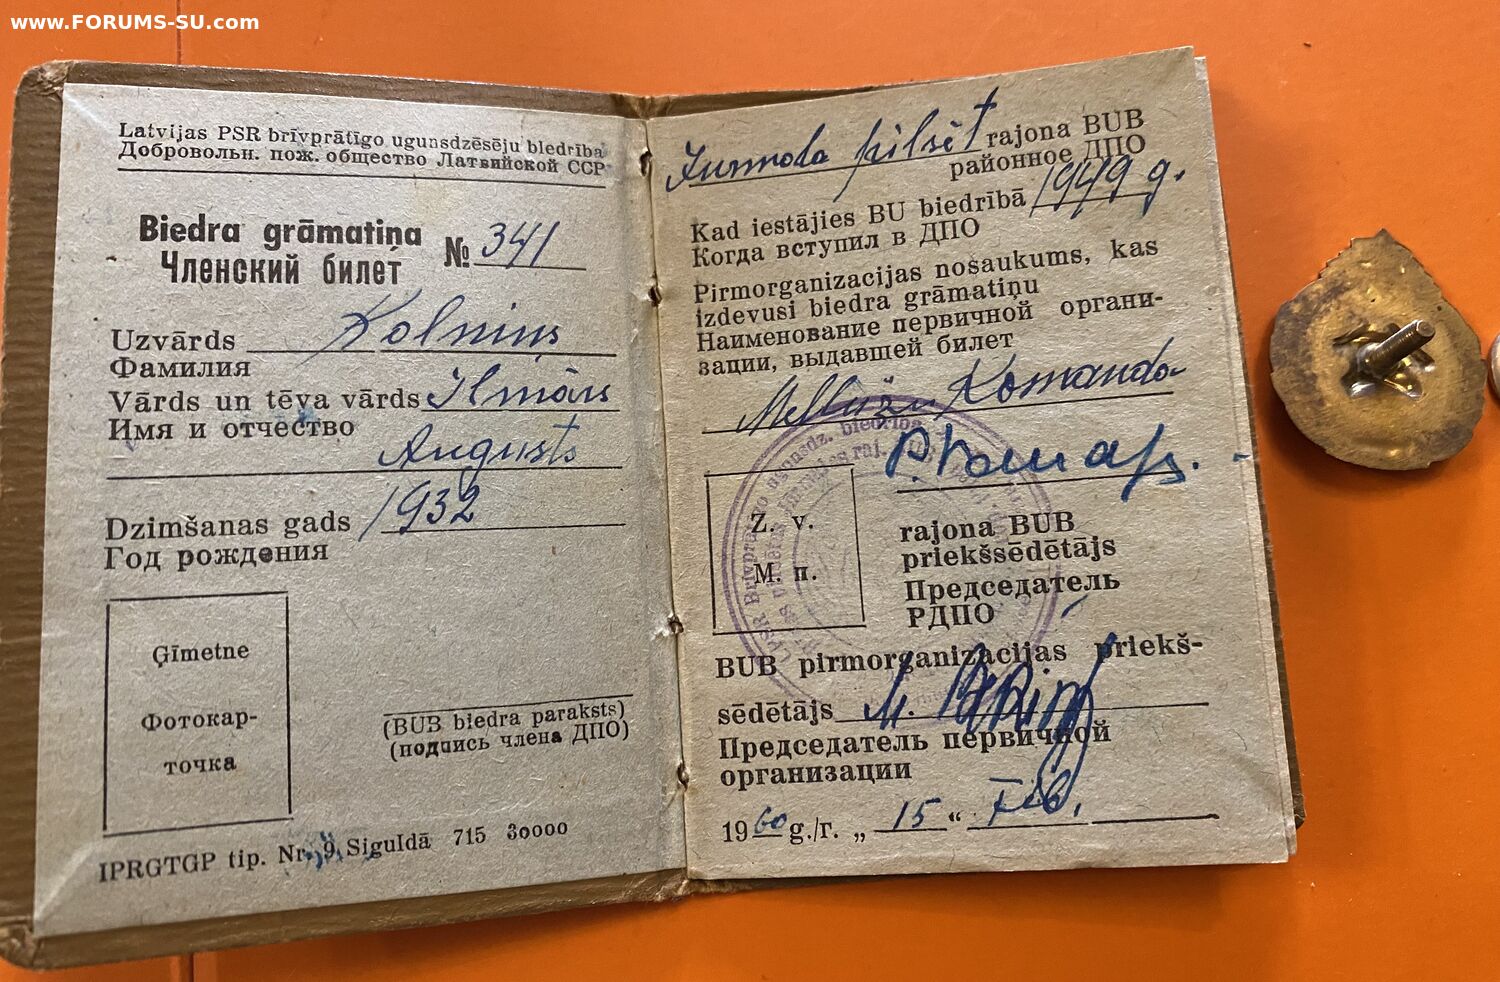 www.FORUMS-SU.com
Latvijas PSR brīvprātīgo ugunsdzēsēju biedrība
Добровольн. пож. общество Латвийской ССР
Biedra grāmatiņa
Членский билет № 341
Uzvārds Kolniņš
Фамилия
Vārds un tēva vārds Ilmārs
Имя и отчество
Augusts
Dzimšanas gads 1932
Год рождения
Ģīmetne
Фотокар-
точка
(BUB biedra paraksts)
(подпись члена ДПО)
IPRGTGP tip. Nr. 9, Siguldā 715 30000
Jurmala pilsēt rajona BUB
районное ДПО
Kad iestājies BU biedrībā 1949 g.
Когда вступил в ДПО
Pirmorganizacijas nosaukums, kas
izdevusi biedra grāmatiņu
Наименование первичной органи-
зации, выдавшей билет
Mellužu Komanda
Z. v.
М. п.
rajona BUB
priekšsēdētājs
Председатель
РДПО
BUB pirmorganizācijas priekš-
sēdētājs
Председатель первичной
организации
1960 g./г. „ 15 “ Feb.